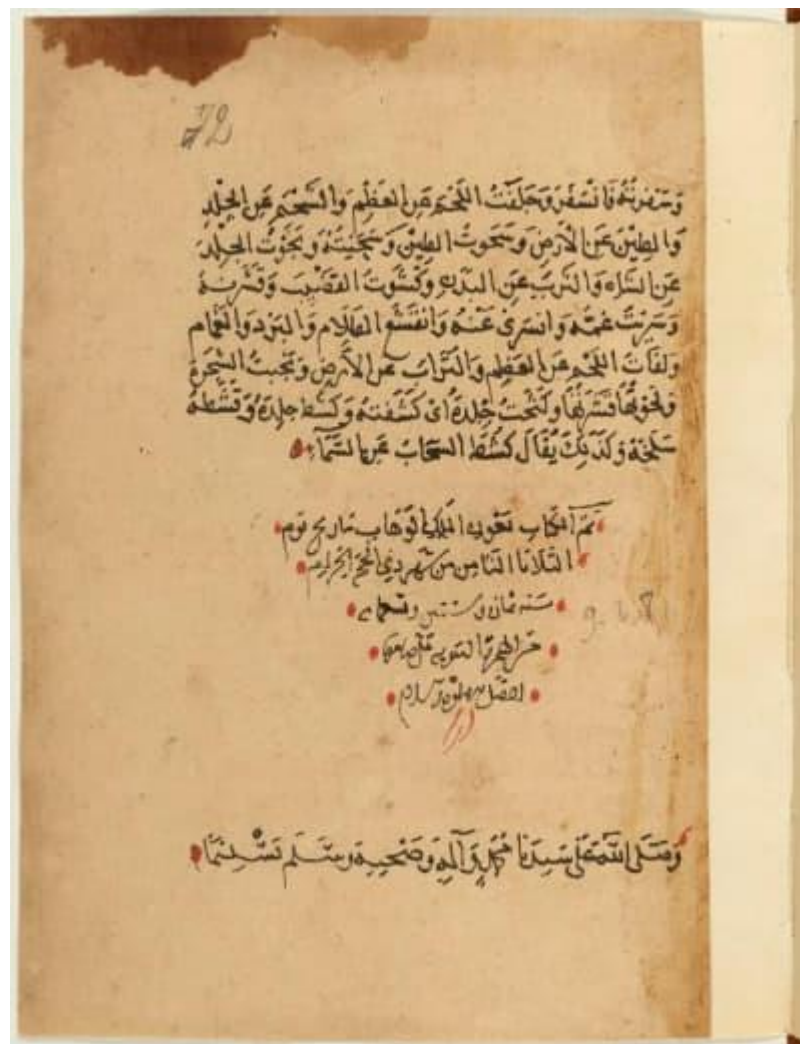 72
وَسَفَرْتُهُ فَانْسَفَرَ وَجَلَفْتُ اللَّحْمَ عَنِ العَظْمِ وَالشَّحْمَ عَنِ الجِلْدِ
وَالطِّيْنَ عَنِ الأَرْضِ وَسَحَوْتُ الطِّيْنَ وَسَحَيْتُهُ وَنَجَوْتُ الجِلْدَ
عَنِ الشَّاةِ وَالثَّوْبَ عَنِ البَدَنِ وَقَشَوْتُ القَضِيْبَ وَقَشَرْتُهُ
وَسَرَيْتُ عَنْهُ وَانْسَرَى عَنْهُ وَانْقَشَعَ الظَّلَامُ وَالبَرْدُ وَالغَمَامُ
وَلَفَأْتُ اللَّحْمَ عَنِ العَظْمِ وَالتُّرَابَ عَنِ الأَرْضِ وَنَجَبْتُ الشَّجَرَةَ
وَلَحَوْتُهَا قَشَرْتُهَا وَلَتَحْتُ جِلْدَهُ اى كَشَفْتُهُ وَكَشَطَ جِلْدَهُ وَقَشَطَهُ
سَلَخَهُ وَكَذَلِكَ يُقَالُ كُشِطَ السَّحَابُ عَنِ السَّمَاءِ
تم الكتاب بعون الملك الوهاب بتاريخ يوم
الثلاثا الثامن من شهر ذي الحجة الحرام
سنة ثمان وستين وتسعمايه
من الهجرة النبوية على صاحبها
افضل الصلوة والسلام
968
وَصَلَّى اللّٰهُ عَلَى سَيِّدِنَا مُحَمَّدٍ وَآلِهِ وَصَحْبِهِ وَسَلَّمَ تَسْلِيْمًا